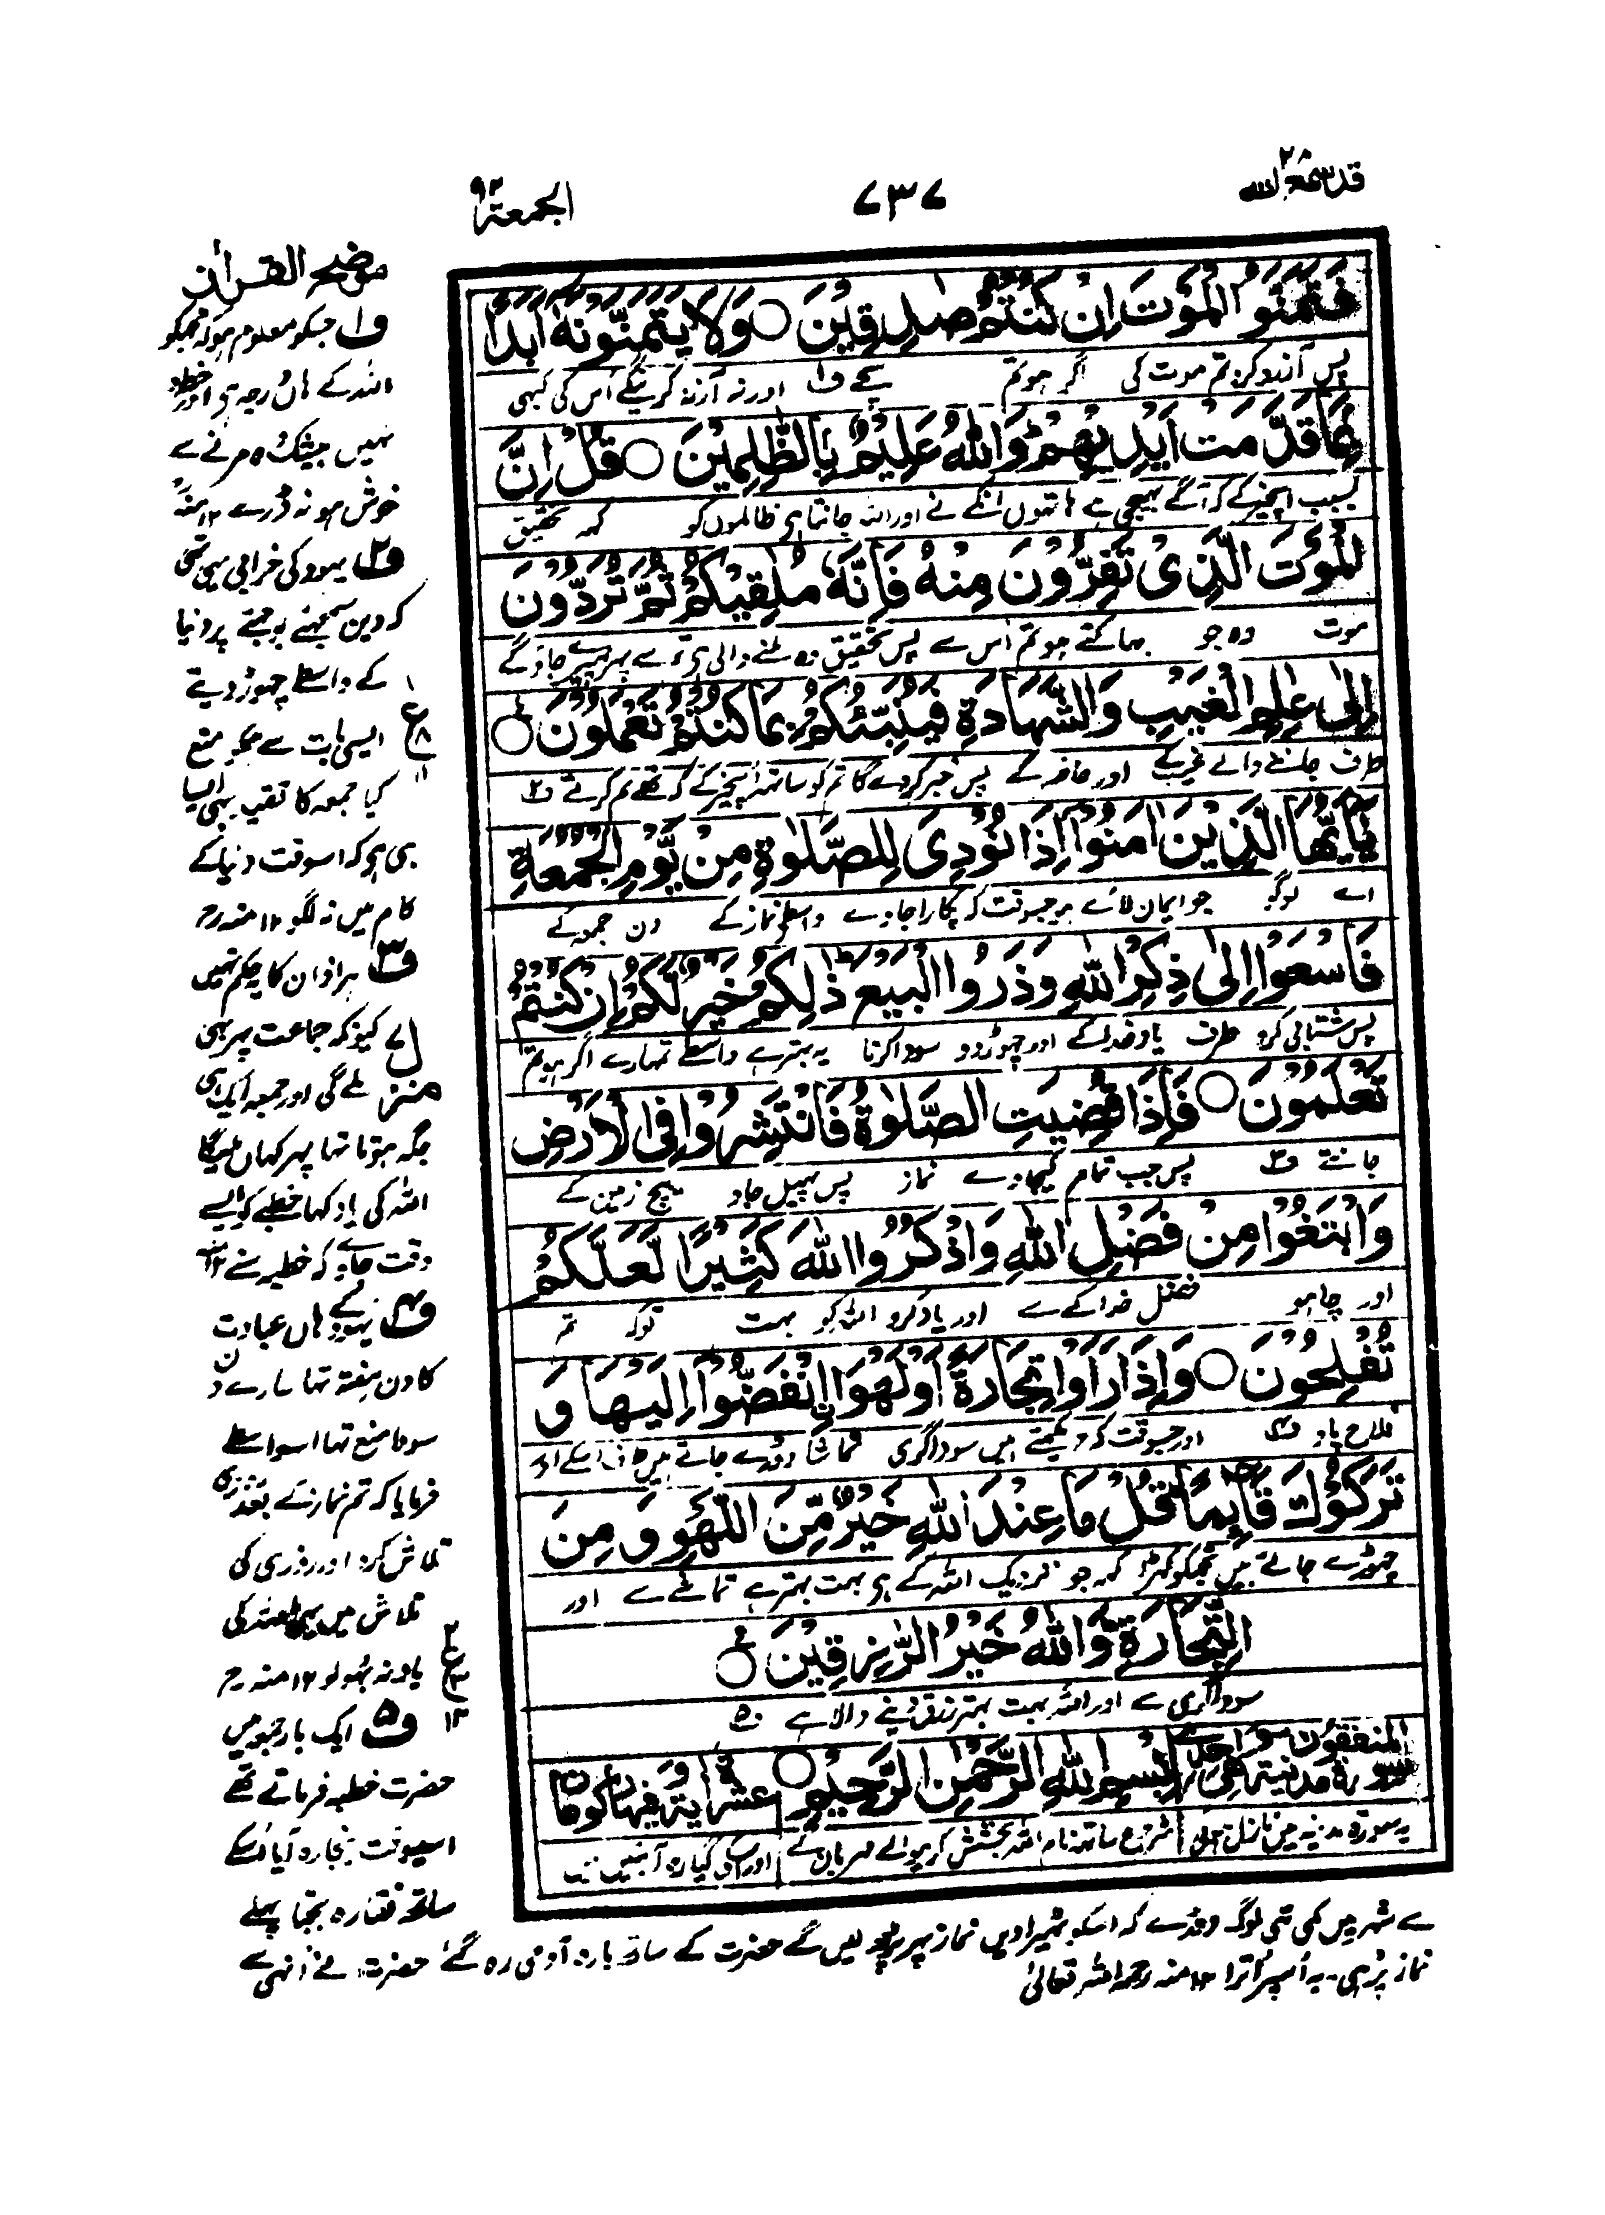 قد سمع الله ٢٨
٧٣٧
الجمعة ٦٢
فَتَمَنَّوُا الْمَوْتَ اِنْ كُنْتُمْ صٰدِقِيْنَ ○ وَلَا يَتَمَنَّوْنَهٗٓ اَبَدًۢا
پس آرزو کرو تم موت کی اگر ہو تم سچے ف١ اور نہ آرزو کرینگے اس کی کبھی
بِمَا قَدَّمَتْ اَيْدِيْهِمْ ؕ وَاللّٰهُ عَلِيْمٌۢ بِالظّٰلِمِيْنَ ○ قُلْ اِنَّ
بسبب اسچیز کے کہ آگے بھیجی ہے ہاتھوں انکے نے اور اللہ جانتا ہی ظالموں کو کہہ تحقیق
الْمَوْتَ الَّذِيْ تَفِرُّوْنَ مِنْهُ فَاِنَّهٗ مُلٰقِيْكُمْ ثُمَّ تُرَدُّوْنَ
موت وہ جو بھاگتے ہو تم اس سے پس تحقیق وہ ملنے والی ہی تم سے پھر پھیرے جاؤگے
اِلٰى عٰلِمِ الْغَيْبِ وَالشَّهَادَةِ فَيُنَبِّئُكُمْ بِمَا كُنْتُمْ تَعْمَلُوْنَ ○
طرف جاننے والے غیب کے اور حاضر کے پس خبر کر دے گا تم کو ساتھ اسچیز کے کہ تھے تم کرتے ف٢
يٰۤاَيُّهَا الَّذِيْنَ اٰمَنُوْۤا اِذَا نُوْدِيَ لِلصَّلٰوةِ مِنْ يَّوْمِ الْجُمُعَةِ
اے لوگو جو ایمان لائے ہو جسوقت کہ پکارا جاوے واسطے نماز کے دن جمعہ کے
فَاسْعَوْا اِلٰى ذِكْرِ اللّٰهِ وَذَرُوا الْبَيْعَ ؕ ذٰلِكُمْ خَيْرٌ لَّكُمْ اِنْ كُنْتُمْ
پس شتابی کرو طرف یاد خدا کے اور چھوڑ دو سودا کرنا یہ بہتر ہے واسطے تمہارے اگر ہو تم
تَعْلَمُوْنَ ○ فَاِذَا قُضِيَتِ الصَّلٰوةُ فَانْتَشِرُوْا فِي الْاَرْضِ
جانتے ف٣ پس جب تمام کیجاوے نماز پس پھیل جاؤ بیچ زمین کے
وَابْتَغُوْا مِنْ فَضْلِ اللّٰهِ وَاذْكُرُوا اللّٰهَ كَثِيْرًا لَّعَلَّكُمْ
اور چاہو فضل خدا کے سے اور یاد کرو اللہ کو بہت توکہ تم
تُفْلِحُوْنَ ○ وَاِذَا رَاَوْا تِجَارَةً اَوْ لَهْوَا ۨانْفَضُّوْۤا اِلَيْهَا وَ
فلاح پاؤ ف٤ اور جسوقت کہ دیکھتے ہیں سوداگری تماشا دوڑے جاتے ہیں طرف اسکے اور
تَرَكُوْكَ قَآئِمًا ؕ قُلْ مَا عِنْدَ اللّٰهِ خَيْرٌ مِّنَ اللَّهْوِ وَ مِنَ
چھوڑے جاتے ہیں تجھکو کھڑا کہہ جو نزدیک اللہ کے ہی بہت بہتر ہے تماشے سے اور
التِّجَارَةِ ؕ وَاللّٰهُ خَيْرُ الرّٰزِقِيْنَ ○
سوداگری سے اور اللہ بہت بہتر رزق دینے والا ہے ف٥
سورة المنفقون مدنية وهى بِسْمِ اللّٰهِ الرَّحْمٰنِ الرَّحِيْمِ ○ احدى عشرة اية وفيها ركوعان
یہ سورة مدینہ میں نازل ہوئی شروع ساتھ نام اللہ بخشش کرنیوالے مہربان کے اور اسکی گیارہ آیتیں ہیں
موضح القرآن
ف١ جسکو معلوم ہو کہ مجھکو
اللہ کے ہاں درجہ ہی اور خطرہ
نہیں بیشک وہ مرنے سے
خوش ہو نہ ڈرے ١٢ منہ رح
ف٢ یہود کی خرابی یہی تھی
کہ دین سمجھنے بوجھتے پر دنیا
کے واسطے چھوڑ دیتے
ایسی بات سے ہمکو منع
کیا جمعہ کا تقید بھی ایسا
ہی ہی کہ اسوقت دنیا کے
کام میں نہ لگو ١٢ منہ رح
ف٣ ہر اذان کا یہ حکم نہیں
کیونکہ جماعت پھر بھی
ملے گی اور جمعہ ایک ہی
جگہ ہوتا تھا پھر کہاں ملیگا
اللہ کی یاد کہا خطبے کو ایسے
وقت جاوے کہ خطبہ سنے ١٢ منہ
ف٤ یہود کے ہاں عبادت
کا دن ہفتہ تھا سارے دن
سودا منع تھا اسواسطے
فرمایا کہ تم نماز کے بعد روزی
تلاش کرو اور روزی کی
تلاش میں بھی اللہ کی
یاد نہ بھولو ١٢ منہ رح
ف٥ ایک بار جمعہ میں
حضرت خطبہ فرماتے تھے
اسیوقت بنجارہ آیا اسکے
ساتھ نقارہ بجتا پہلے
سے شہر میں کمی تھی لوگ دوڑے کہ اسکو ٹھیراویں نماز پھر پڑھ لیں گے حضرت کے ساتھ بارہ آدمی رہ گئے حضرت نے انہی سے
نماز پڑھی۔ یہ اسپر اترا ١٢ منہ رحمہ اللہ تعالیٰ